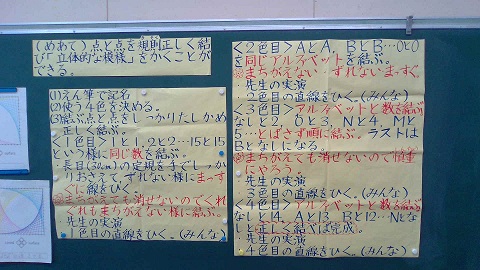 (めあて)点と点を規則正しく結
び「立体的な模様」をかくことが
できる。
(1)えん筆で記名
(2)使う4色を決める。
(3)結ぶ点と点をしっかりたしかめ
正しく結ぶ。
<1色目>1と1,2と2…15と15
という様に同じ数を結ぶ。
長目(30cm)の定規を手でしっか
りおさえて、ずれない様にまっす
ぐに線をひく。
まちがえても消せないのでくれ
ぐれもまちがえない様に結ぶ。
先生の実演
1色目の直線をひく。(みんな)
<2色目>AとA,BとB…OとO
を同じアルファベットを結ぶ。
まちがえない ずれない まっすぐ
先生の実演
2色目の直線をひく。(みんな)
<3色目>アルファベットと数を結ぶ
なしと2,Oと3,Nと4 Mと
5…とばさず順に結ぶ。ラストは
Bとなしになる。
まちがえても消せないので慎重
にやろう。
先生の実演
3色目の直線をひく。(みんな)
<4色目>アルファベットと数を結ぶ
なしと14,Aと13 Bと12…Nとな
しと正しく結べば完成。
先生の実演
4色目の直線をひく。(みんな)